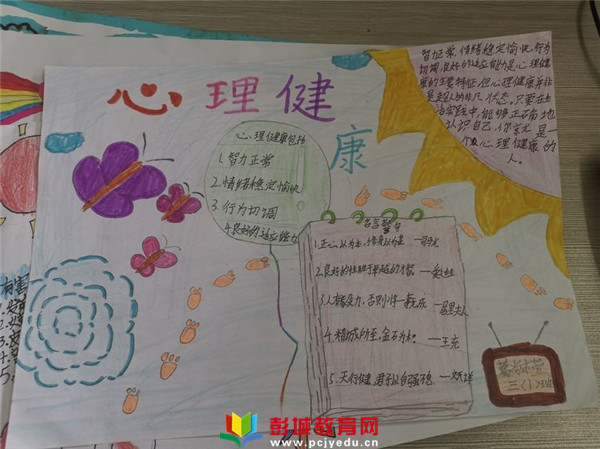 心理健康
智力正常,情绪稳定愉快,行为
协调,良好的适应能力是心理健
康的主要特征,但心理健康并非
是超人的非凡状态,只要在生
活实践中,能够正确地
认识自己,你就是一
个心理健康的
人。
心理健康包括
1.智力正常
2.情绪稳定愉快
3.行为协调
4.良好的适应能力
名言警句
1.正心以为本,修身以为基
2.良好的
3.人格
否则将一事无成
4.精诚所至,金石为开 —王充
5.天行健,君子以自强不息
三(1)
有害
彭城教育网
www.pcjyedu.cn